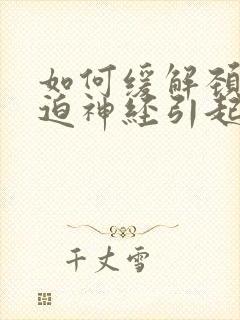 如何缓解颈
迫神经引起
千丈雪